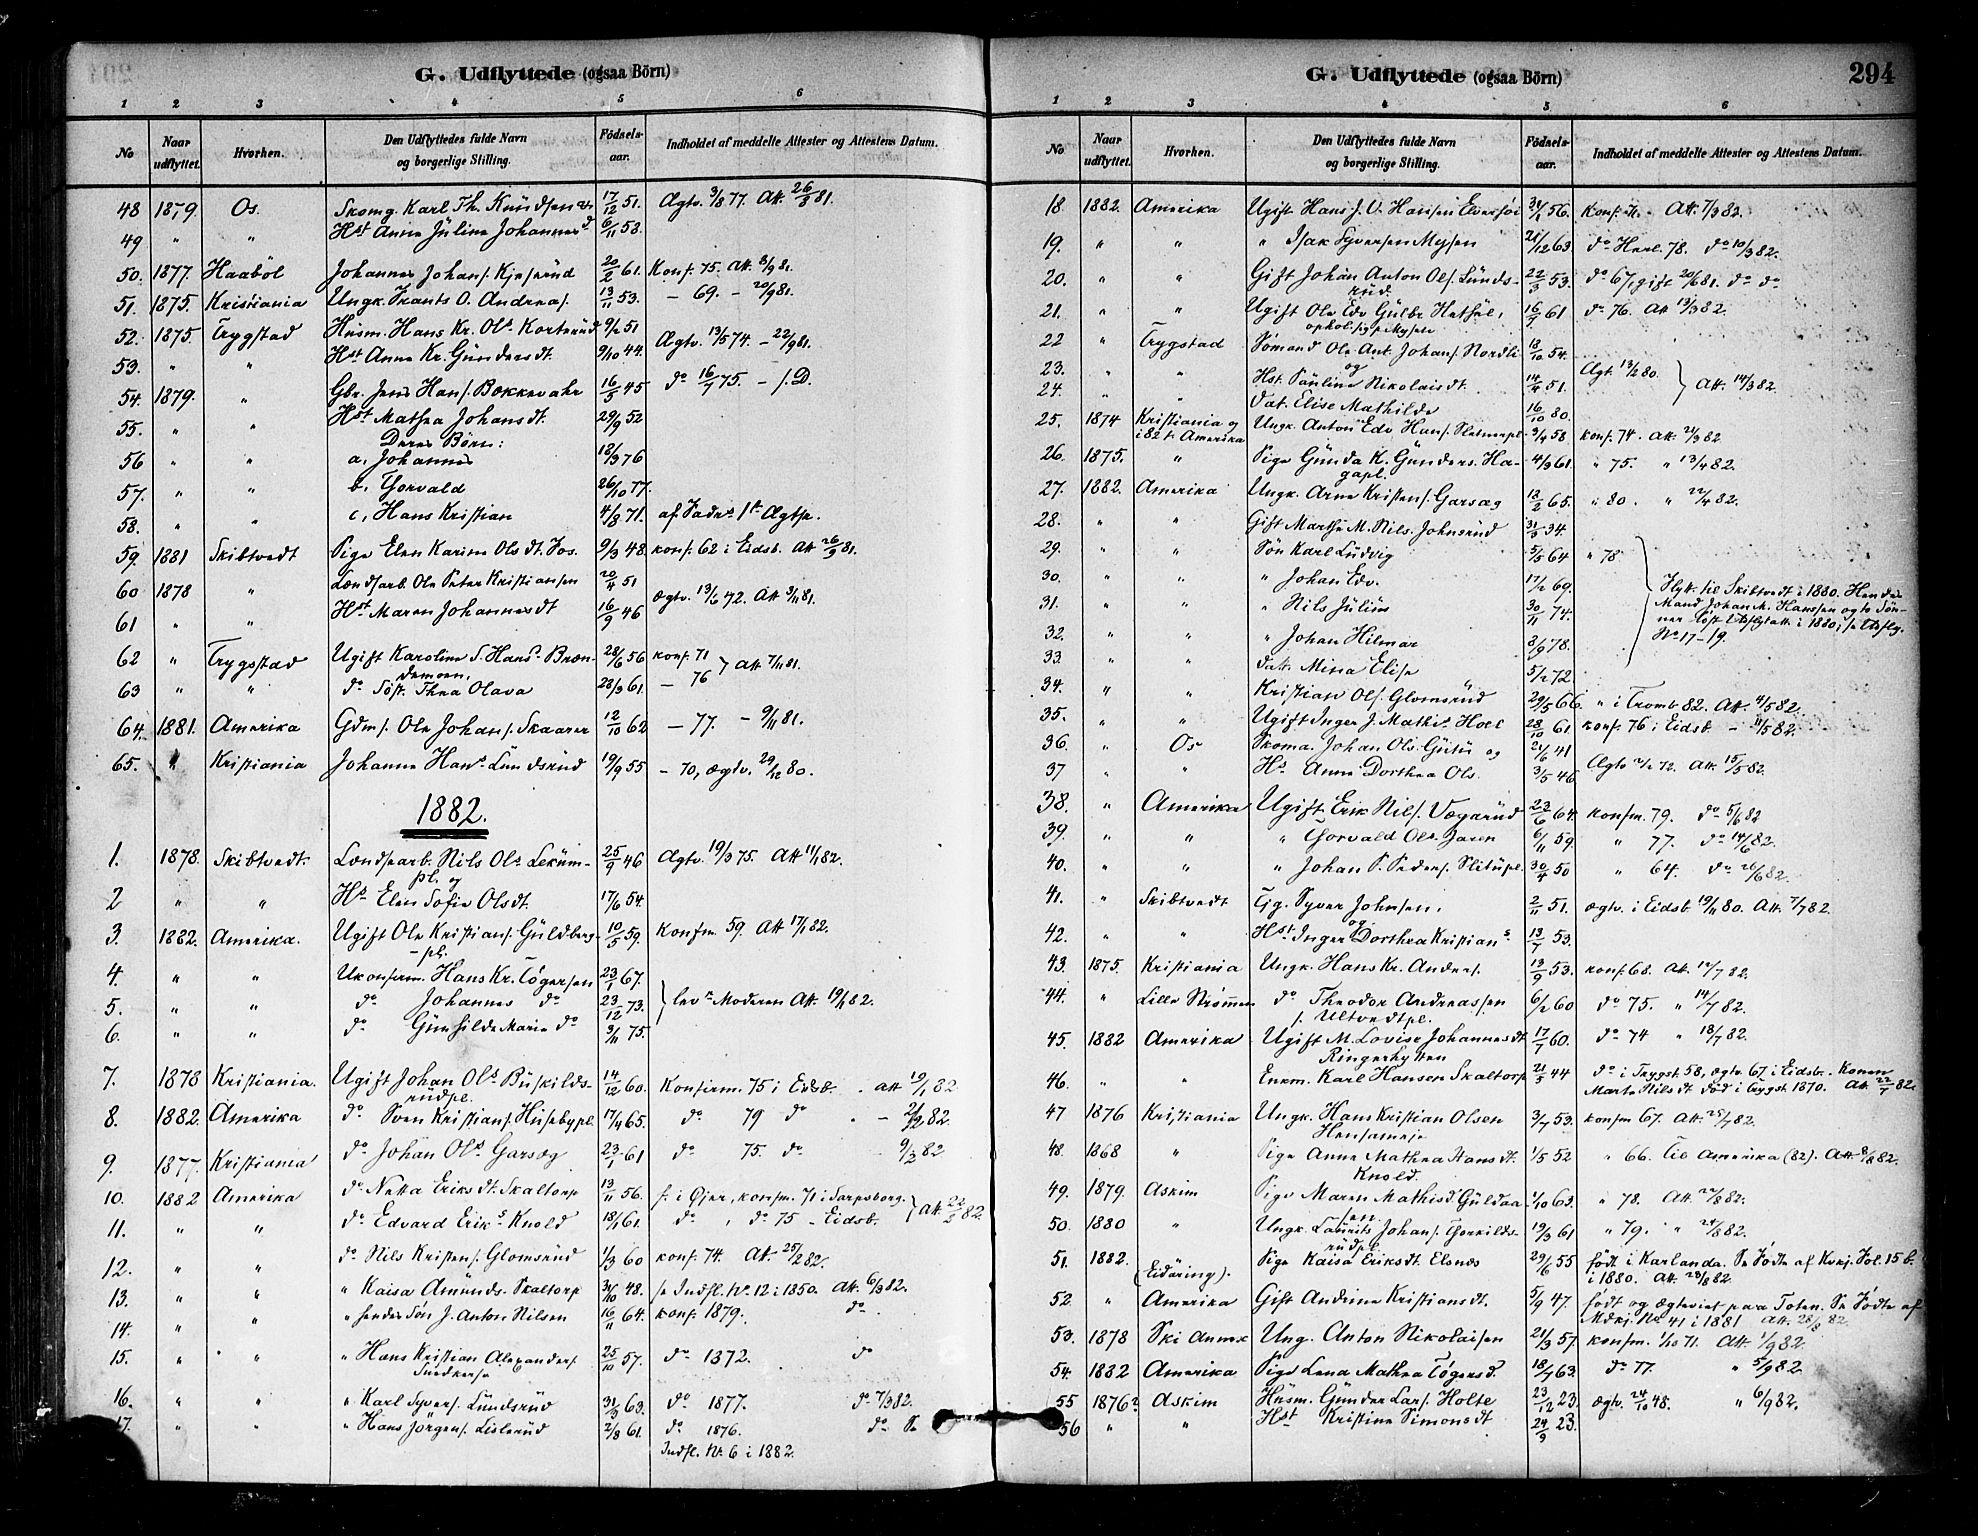 G. Udflyttede (ogsaa Börn)
1 2 3 4 5 6
No Naar udflyttet. Hvorhen. Den Udflyttedes fulde Navn og borgerlige Stilling. Födsels-aar. Indholdet af meddelte Attester og Attestens Datum.
48 1879. Os. Skomg. Karl Th. Knudsen 17/12 51. Ægtv. 3/8 77. Att. 26/8 81.
49 " " Hst Anne Juline Johannesd. 6/11 58.
50. 1877. Haaböl Johannes Johans. 20/2 61. Konf. 75. Att. 8/9 81.
51. 1875. Kristiania Ungk. Frants O. Andreas. 13/11 53. – 69. – 20/9 81.
52. 1875 Trygstad Husm. Hans Kr. Ols. Korterud 9/2 51 Ægtv. 13/5 74. – 22/9 81.
53. " " Hst Anne Kr. Gundersdt. 9/10 44.
54. 1879. " Gbr. Jens Hans. Bokkevahr 16/5 45 do 16/4 75. – s. D.
55. " " Hst Mathea Johansdt. 29/9 52
Deres Börn:
56 " " a. Johannes 18/3 76
57. " " b. Torvald 26/10 77.
58. " " c, Hans Kristian 4/8 71. af Faders 1st Ægtsk.
59. 1881 Skibtvedt Pige Elen Karine Olsdt. Fos. 9/3 48. konf. 62 i Eidsb. Att 26/9 81.
60 1878 " Lændsarb. Ole Peter Kristiansen 20/4 51 ægtv. 13/6 72. Att 3/11 81.
61 " " Hst Maren Johannesdt 16/9 46
62 " Trygstad Ugift Karoline S. Hans. Bræn-demoen, 28/6 56 konf. 71 } Att 7/11 81.
63 " " do Söst. Thea Olava 28/3 61. – 76
64. 1881. Amerika Gdms. Ole Johans. Skaarer 12/10 62 – 77. – 9/11 81.
65. " Kristiania Johanne Hans. Lundsrud 19/9 55 – 70, ægtv. 29/12 80.
1882.
1. 1878. Skibtvedt Lændsarb. Nils Ols. Lekum-pl. og 25/9 46 Ægtv. 19/3 75. Att 11/1 82.
2 " " Hst Elen Sofie Olsdt. 17/6 54.
3. 1882. Amerika. Ugift Ole Kristians. Guldberg-pl. 10/5 59. Konfm. 59. Att 17/1 82.
4. " " Ukonfirm. Hans Kr. Tögersen 23/1 67.
5. " " do Johannes do 23/12 73. } lev. Moderen Att. 19/1 82.
6. " " do Gunhilde Marie do 3/11 75.
7. 1878 Kristiania. Ugift Johan Ols. Buskilds-rudpl. 14/12 60. Konfirm. 75 i Eidsb. att 19/1 82.
8. 1882. Amerika do Sven Kristians. Husebypl. 17/4 65. do 79 do – 2/2 82.
9. 1877. Kristiania do Johan Ols Garseg 23/1 61 do 75. do 9/2 82
10. 1882 Amerika do Netta Eriksdt. Skaltorp 13/11 56. f. i Øjer, konfm. 71 i Sarpsborg. } Att. 22/2 82.
11. " " do Edvard Eriks. Knold 18/1 61. do, do 75 – Eidsb.
12. " " do Nils Kristens. Glomsrud 1/3 60 konf. 74. Att. 25/2 82.
13. " " " Kaisa Amunds. Skaltorp 31/10 48. se Indfl. No 12 i 1850. Att. 6/3 82.
14. " " " hendes Sön J. Anton Nilsen 16/11 64. konf. 1879. do.
15. " " " Hans Kristian Alexanders. Snedkers. 25/10 57. do 1872. do
16. " " " Karl Syvers. Lundsrud 31/3 63. do 1877. do 7/3 82.
17. " " " Hans Jörgens. Lislerud 2/8 61. do 1876. do. Se
Indfl. Nr. 6 i 1882.
G. Udflyttede (ogsaa Börn) 294
1 2 3 4 5 6
No Naar udflyttet. Hvorhen. Den Udflyttedes fulde Navn og borgerlige Stilling. Födsels-aar. Indholdet af meddelte Attester og Attestens Datum.
18. 1882. Amerika Ugift Hans J. O. Hansen 56. Konf. Att. 7/3 82.
19. " " " Isak Syversen Mysen 21/12 63. do Herl. 78. do 10/3 82.
20. " " Gift Johan Anton Ols. Lunds-rud. 22/3 53. do 67, gift 20/6 81. do do
21. " " Ugift Ole Edv Gulbr. 16/9 61 do 76. Att 13/3 82.
22 " Trygstad Somand Ole Ant. Johans. Nordli og 18/10 54.
23. " " Hst. Pauline Nikolaisdt. 14/4 51. Ægt. 13/2 80. } Att. 14/3 82.
24. " " Dat. Elise Mathilde 16/10 80.
25. 1874 Kristiania og i 82 t. Amerika Ungk. Anton Edv Hans. 3/4 58. konf. 74. att. 24/3 82
26. 1875. " Pige Gunda K. Gunders. Ha-gapl. 4/3 61. " 75. " 13/4 82.
27. 1882. Amerika Ungk. Arne Kristens. Garseg 12/2 65. " 80. " 22/4 82.
28. " " Gift Marthe M. Nils. Johnsrud 31/3 34.
29. " " Sön Karl Ludvig 5/5 64 " 78
30. " " " Johan Edv. 17/2 69.
31. " " " Nils Julius 30/11 74.
32. " " " Johan Hilmar 2/9 78.
33. " " Dat. Mina Elise 5/2 72
} Flytt. til Skibtvedt i 1880. Hendes
Mand Johan M. Hanssen og to Sön-
ner löst Udflytatt. i 1880; se Udflg.
No 17–19.
34. " " Kristian Ols. Glomsrud 29/5 66. " i Tromb 82. Att. 4/5 82.
35. " " Ugift Inger J. Mathis. Hoel 28/10 61. konf. 76 i Eidsb. – 11/5 82.
36. " Os Skoma. Johan Ols. og 21/6 41
37 " " Hs Anne Dorthea Ols. 3/5 46 Ægtv 2/2 72. Att. 15/5 82.
38. " Amerika Ugift Erik Nils. 23/6 64. konfm. 79. do 5/6 82
39. " " " Torvald Ols. Jaren 6/11 59. " 77. do 14/6 82.
40. " " " Johan P. Peders. Slitupl. 30/4 50 " 64. do 26/6 82.
41. " Skibtvedt Tjg. Syver Johnsen, og 2/11 51. ægtv. i Eidsb. 19/11 80. Att. 7/7 82.
42. " " Hst. Inger Dorthea Kristians. 13/7 53.
43. 1875. Kristiania Ungk. Hans Kr. Anders. 13/9 53. konf. 68. att. 12/7 82.
44. " Lille Strömmen do Theodor Andreassen s. Ultvedtpl. 6/2 60 do 75. " 14/7 82.
45. 1882 Amerika Ugift M. Lovise Johannesdt Ringerhytten 17/7 60. do 74 " 18/7 82.
46. " " Enkm. Karl Hansen Skaltorp 21/5 44 do i Trygst. 58, ægtv. 67 i Eidsb. Konen
Marte Nilsdt död i Trygst. 1870. Att. 22/7 82.
47 1876 Kristiania Ungk. Hans Kristian Olsen 3/7 53. konfm 67. Att. 25/7 82.
48. 1868 " Pige Anne Mathea Hansdt. Knold. 1/5 52 " 66. Til Amerika (82). Att. 8/8 82.
49. 1879. Askim Pige Maren Mathisd. Guldaa-sen 1/10 63. " 78. Att. 22/8 82.
50. 1880 " Ungk. Laurits Johans. Torkilds-rudpl. 19/3 61 " 79. " 24/8 82.
51. 1882. (Eidöring). Pige Kaisa Eriksdt. Elsnes 29/6 55 födt i Karlanda. Se Födte af Kvkj. Fol. 15 b.
i 1880. Att. 28/8 82.
52. " Amerika Gift Andrine Kristiansdt. 5/9 47. födt og ægteviet paa Toten. Se Födte af
Mdkj. No 41 i 1881 att. 28/8 82.
53. 1878 Ski Annex Ung. Anton Nikolaisen 21/3 57. konfm. 1/10 71. Att. 1/9 82.
54. 1882 Amerika Pige Lena Mathea Tögersd. 18/7 63. do 77. " 5/9 82.
55 1876? Askim Husm. Gunder Lars. Holte 23/12 23. ægtv. 24/10 48. " 6/9 82.
56 " " Hst Kristine Simonsdt 24/9 23.